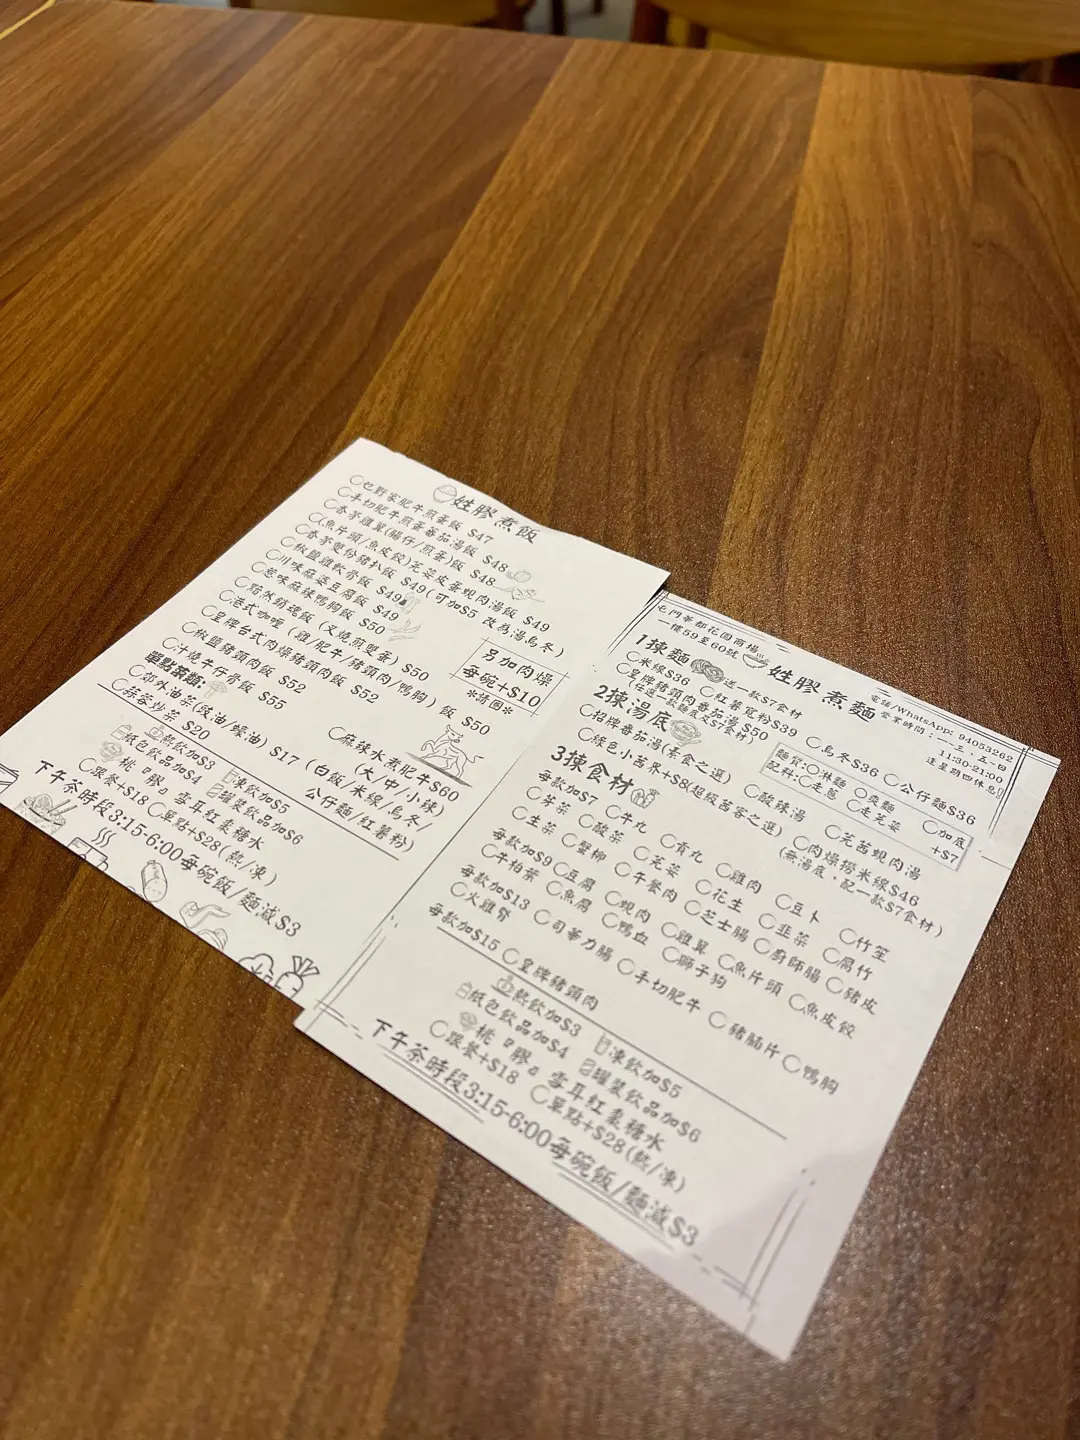 姓膠煮飯
乜野家肥牛煎蛋飯 $47
手切肥牛煎蛋蕃茄湯飯 $48
香茅雞翼(腸仔/煎蛋)飯 $48
(魚片頭/魚皮餃)芫荽皮蛋蜆肉湯飯 $49
香茅雙份豬扒飯 $49(可加$5 改為湯烏冬)
椒鹽雞軟骨飯 $49
川味麻婆豆腐飯 $49
惹味麻辣鴨胸飯 $50
黯然銷魂飯 (叉燒煎雙蛋) $50
港式咖喱 (雞/肥牛/豬頸肉/鴨胸) 飯 $50
皇牌台式肉燥豬頸肉飯 $52
椒鹽豬頸肉飯 $52
汁燒牛仔骨飯 $55
另加肉燥
每碗+$10
*請圈*
單點菜類:
郊外油菜(豉油/蠔油) $17
蒜蓉炒菜 $20
麻辣水煮肥牛$60
(大/中/小辣)
(白飯/米線/烏冬/
公仔麵/紅薯粉)
熱飲加$3 凍飲加$5
紙包飲品加$4 罐裝飲品加$6
桃膠 雪耳紅棗糖水
跟餐+$18 單點+$28(熱/凍)
下午茶時段3:15-6:00每碗飯/麵減$3
屯門華都花園商場
一樓59至60號
姓膠煮麵
電話/WhatsApp: 94053262
營業時間:一、三、五、日
11:30-21:00
逢星期四休息!
1揀麵 送一款$7食材
米線$36 紅薯寬粉$39 烏冬$36 公仔麵$36
皇牌豬頸肉番茄湯 $50
(任選一款麵底及$7食材)
麵質:淋麵 爽麵
配料:走蔥 走芫荽
加底
+$7
2揀湯底
招牌番茄湯(素食之選) 酸辣湯 芫茜蜆肉湯
綠色小苦界+$8(超級苦客之選) 肉燥撈米線$46
(無湯底,配一款$7食材)
3揀食材
每款加$7 牛丸 貢丸 雞肉 豆卜 竹笙
芽菜 酸菜 芫荽 花生 韭菜 腐竹
生菜 蟹柳 午餐肉 芝士腸 廚師腸 豬皮
每款加$9 豆腐 蜆肉 雞翼 魚片頭 魚皮餃
牛柏葉 魚腐 鴨血 獅子狗
每款加$13 司華力腸 手切肥牛 豬腩片 鴨胸
火雞腎
每款加$15 皇牌豬頸肉
熱飲加$3 凍飲加$5
紙包飲品加$4 罐裝飲品加$6
桃膠 雪耳紅棗糖水
跟餐+$18 單點+$28(熱/凍)
下午茶時段3:15-6:00每碗飯/麵減$3